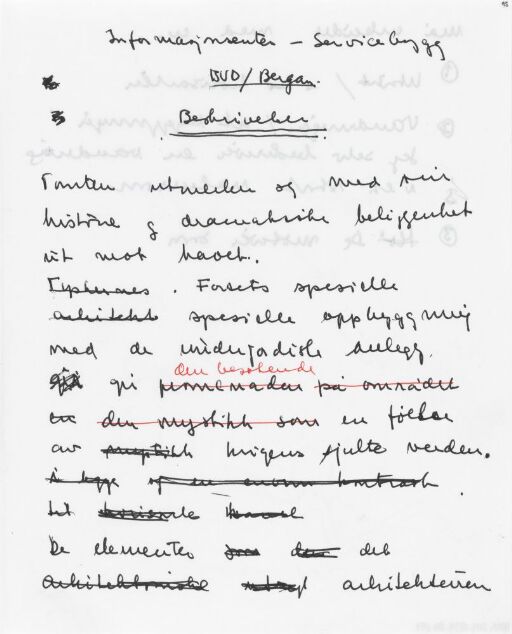 Informasjonsenter – Servicebygg
BUD / Bergan.
Beskrivelse
Tomten utmerker seg med sin
historie og dramatiske beliggenhet
ut mot havet.
Forets spesielle
arkitekt spesielle oppbygging
med de underjordiske anlegg.
den besøkende
gir promenaden på området
en den mystikk som en følelse
av krigens skjulte verden.
å legge og en enorm kontrast
til
De elementer som den det
arkitektoniske arkitekturen